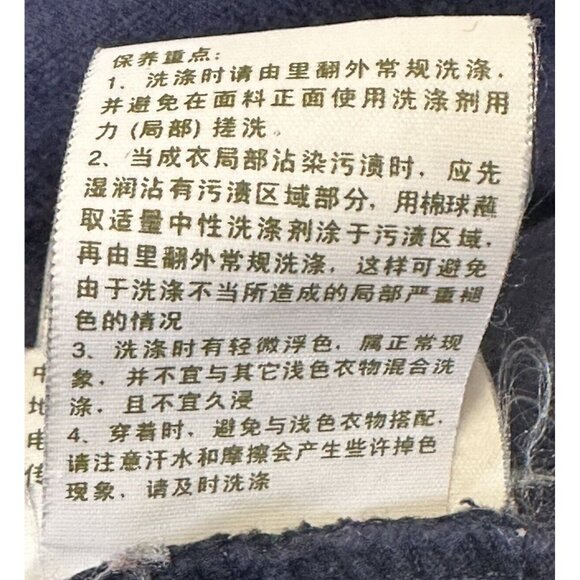 保养重点：
1、洗涤时请由里翻外常规洗涤，
并避免在面料正面使用洗涤剂用
力(局部)搓洗。
2、当成衣局部沾染污渍时，应先
湿润沾有污渍区域部分，用棉球蘸
取适量中性洗涤剂涂于污渍区域，
再由里翻外常规洗涤，这样可避免
由于洗涤不当所造成的局部严重褪
色的情况
3、洗涤时有轻微浮色，属正常现
象，并不宜与其它浅色衣物混合洗
涤，且不宜久浸
4、穿着时，避免与浅色衣物搭配，
请注意汗水和摩擦会产生些许掉色
现象，请及时洗涤
中
地
电
传